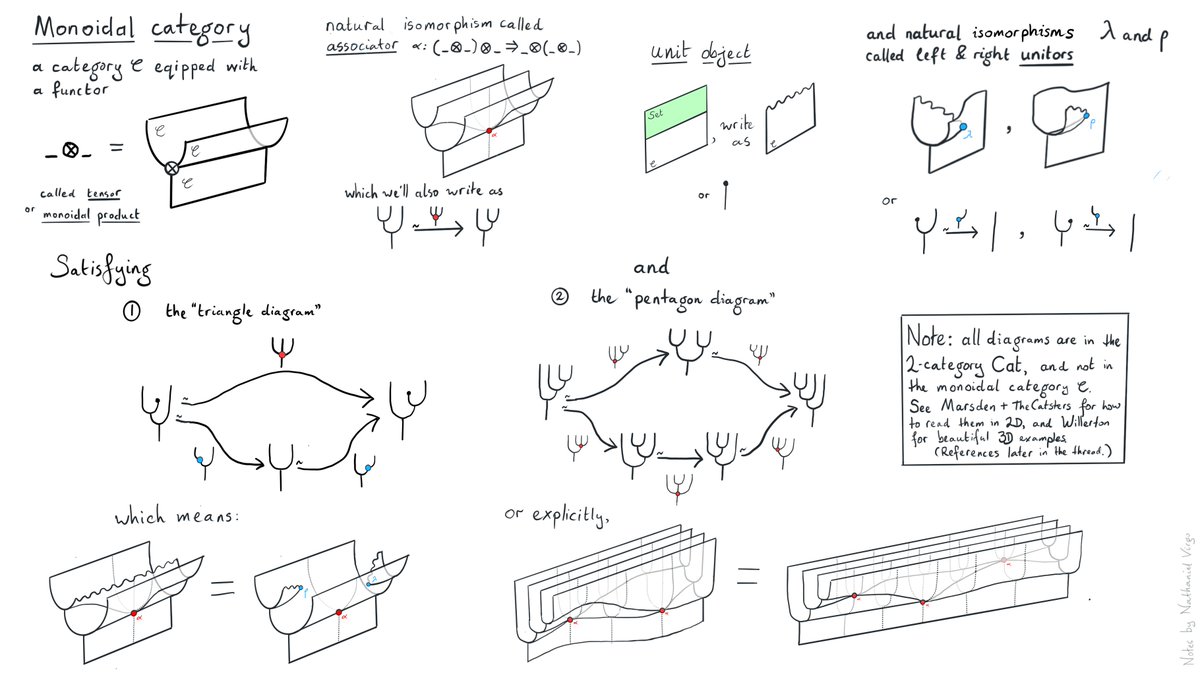 Monoidal category
a category C eqipped with
a functor
_⊗_ =
C
C
C
called tensor
or monoidal product
natural isomorphism called
associator α: (_⊗_)⊗_ ⇒ _⊗(_⊗_)
α
which we'll also write as
~
unit object
Set
C
, write
as
C
or
and natural isomorphisms λ and ρ
called left & right unitors
λ
,
ρ
or
~
,
~
Satisfying
① the "triangle diagram"
~
~
~
which means:
α
=
ρ
λ
α
and
② the "pentagon diagram"
~
~
~
~
~
or explicitly,
α
α
=
α
α
α
Note: all diagrams are in the
2-category Cat, and not in
the monoidal category C.
See Marsden + TheCatsters for how
to read them in 2D, and Willerton
for beautiful 3D examples
(References later in the thread.)
Notes by Nathaniel Virgo